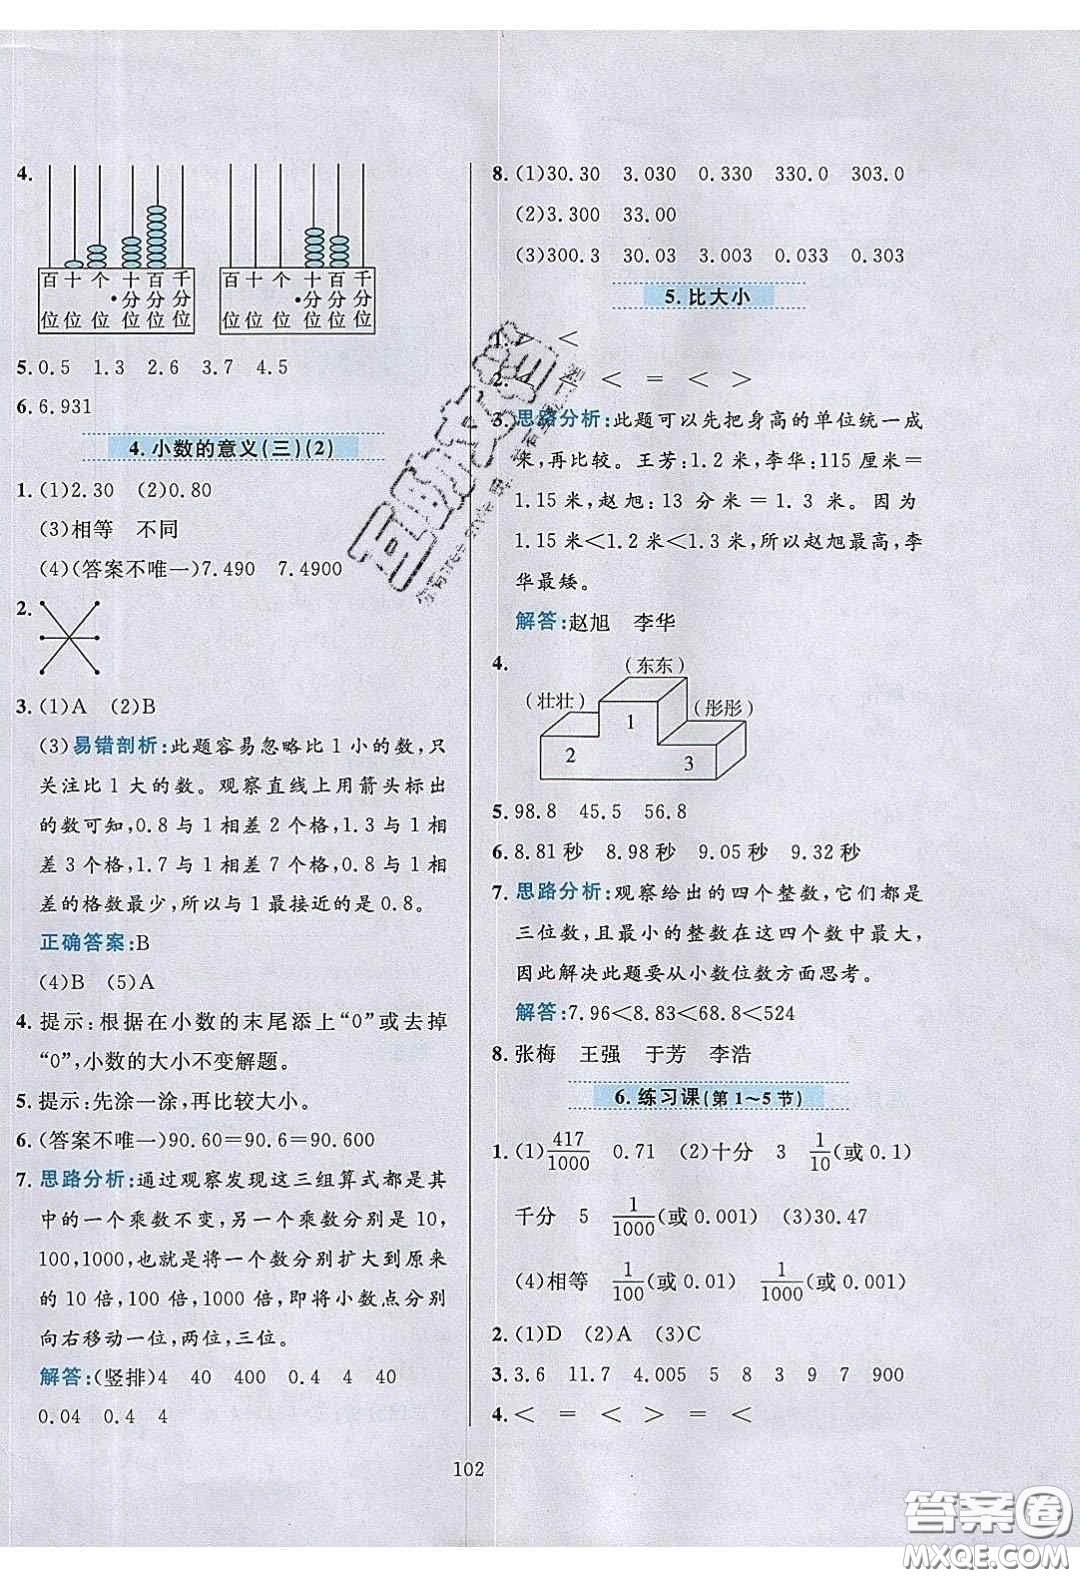 4.
百 十 个 十 百 千
• 分 分 分
位 位 位 位 位 位
百 十 个 十 百 千
• 分 分 分
位 位 位 位 位 位
5. 0.5 1.3 2.6 3.7 4.5
6. 6.931
4. 小数的意义(三)(2)
1. (1)2.30 (2)0.80
(3)相等 不同
(4)(答案不唯一)7.490 7.4900
2.
3. (1)A (2)B
(3)易错剖析:此题容易忽略比1小的数,只
关注比1大的数。观察直线上用箭头标出
的数可知,0.8与1相差2个格,1.3与1相
差3个格,1.7与1相差7个格,0.8与1相
差的格数最少,所以与1最接近的是0.8。
正确答案:B
(4)B (5)A
4. 提示:根据在小数的末尾添上“0”或去掉
“0”,小数的大小不变解题。
5. 提示:先涂一涂,再比较大小。
6. (答案不唯一)90.60=90.6=90.600
7. 思路分析:通过观察发现这三组算式都是其
中的一个乘数不变,另一个乘数分别是10,
100,1000,也就是将一个数分别扩大到原来
的10倍,100倍,1000倍,即将小数点分别
向右移动一位,两位,三位。
解答:(竖排)4 40 400 0.4 4 40
0.04 0.4 4
8. (1)30.30 3.030 0.330 330.0 303.0
(2)3.300 33.00
(3)300.3 30.03 3.003 0.033 0.303
5. 比大小
1. > <
2. < = < >
3. 思路分析:此题可以先把身高的单位统一成
米,再比较。王芳:1.2米,李华:115厘米=
1.15米,赵旭:13分米=1.3米。因为
1.15米<1.2米<1.3米,所以赵旭最高,李
华最矮。
解答:赵旭 李华
4.
(东东)
(壮壮)
(彤彤)
1
2
3
5. 98.8 45.5 56.8
6. 8.81秒 8.98秒 9.05秒 9.32秒
7. 思路分析:观察给出的四个整数,它们都是
三位数,且最小的整数在这四个数中最大,
因此解决此题要从小数位数方面思考。
解答:7.96<8.83<68.8<524
8. 张梅 王强 于芳 李浩
6. 练习课(第1~5节)
1. (1)417/1000 0.71 (2)十分 3 1/10(或0.1)
千分 5 1/1000(或0.001) (3)30.47
(4)相等 1/100(或0.01) 1/1000(或0.001)
2. (1)D (2)A (3)C
3. 3.6 11.7 4.005 5 8 3 9 7 900
4. < = < > = <
102
答案圈
MXQE.COM